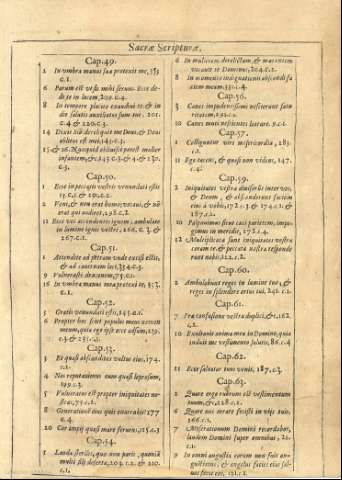 Sacræ Scripturæ,
Cap.49.
2 In umbra manus suæ protexit me, 353
c.1.
6 Parum est ut sis mihi servus. Ecce de-
di te in lucem, 209.c.4.
8 In tempore placito exaudivi te & in
die salutis auxiliatus sum tui. 201.
c.4 & 220.c.3.
14 Dixit Sion dereliquit me Deus, & Deus
oblitus est mei, 143.c.3.
15 & 16. Nunquid oblivisci potest mulier
infantem, & c 143.c.3 & 4. & 230.
c.3.
Cap.50.
1 Ecce in peccatis vestris venundati estis
c.1. &
2 Veni, & non erat homo; vocavi, & nō
erat qui audiret, 298.c.2.
11 Ecce vos accendentes ignem, ambulate
in lumine ignis vestri, 266.c.3. &
267.c.1.
Cap.51.
1 Attendite ad petram unde excisi estis,
& ad cavernam laci, 354.c.3.
9 Vulnerasti draconem, 73.c.1.
16 In umbra manus meæ protexi te, 353.
c.1.
Cap.52.
3 Gratis venundati estis, 145.c.1.
6 Propter hoc sciet populus meus nomen
meum, quia ego ipse ecce adsum, 259.
c.3. &
Cap.53.
3 Et quasi absconditus vultus eius, 174.
c.1.
4 Nos reputavimus eum quasi leprosum,
199.c.3.
5 Vulneratus est propter iniquitates no-
stras, 75.c.1.
8 Generationem eius quis enarrabit 177
c.4.
20 Cor impij quasi mare fervens, 115.c.3
Cap.54.
1 Lauda sterilis, quæ non paris, quoniā
multi filij desertæ, 203. c.2. & 210.
c.1.
6 In mulierem derelictam, & mærentem
vocavit te Dominus, 204.c.2.
8 In momento indignationis abscondi fa
ciem meam. 351.c.4.
Cap.56.
3 Canes impudentissimi nescierunt satu-
ritatem, 192.c.1.
10 Canes muti nescientes latrare. 9.c.1.
Cap.57.
1 Colliguntur viri misericordiæ, 283.
c.1.
11 Ego tacens, & quasi non videns, 147.
c.4.
Cap.59.
2 Iniquitates vestræ diviserunt inter vos,
& Deum, & absconderunt faciem
eius à vobis, 172.c.3. & 174.c.1. &
187.c.2.
10 Palpavimus sicut cæci parietem, impe-
gimus in meridie, 172.c.4.
12 Multiplicatæ sunt iniquitates vestræ
coram te & peccata nostra responde
runt nobis, 122.c.2.
Cap.60.
2 Ambulabunt reges in lumine tuo, &
reges in splendore ortus tui, 241. c.1.
Cap.61.
7 Pro confusione vestra duplici, &c, 162.
c.2.
10 Exultavit anima mea in Domino, quia
induit me vestimento salutis, 86.c.4
Cap.62
11 Ecce salvator tuus venit, 187.c.3.
Cap.63.
2 Quare ergo rubrum est vestimentum
tuum, &c, 128.c.1.
6 Quare nos errare fecisti in vijs tuis,
166.c.1.
7 Miserationum Domini recordabor,
laudem Domini super omnibus, 21.
c.1.
9 In omni angustia eorum non fuit an-
gustiatus, & angelus faciei eius sal-
vavit eos, 191.c.1.